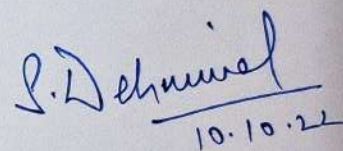 S. Dehmiwal
10.10.22